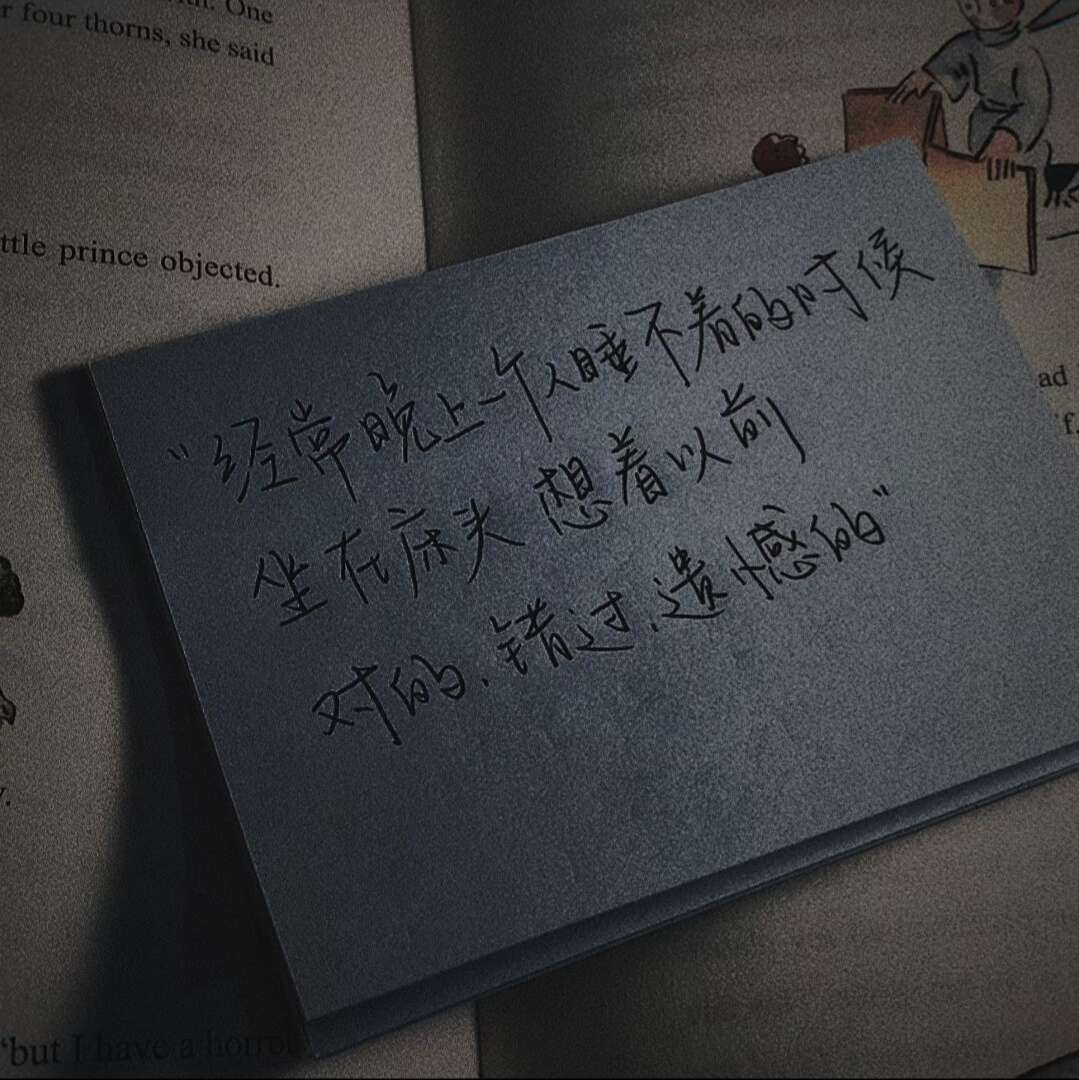 four thorns, she said
One
ttle prince objected.
"经常晚上一个人睡不着的时候
坐在床头 想着以前
对的.错过.遗憾的"
ad
f.
"but I have a